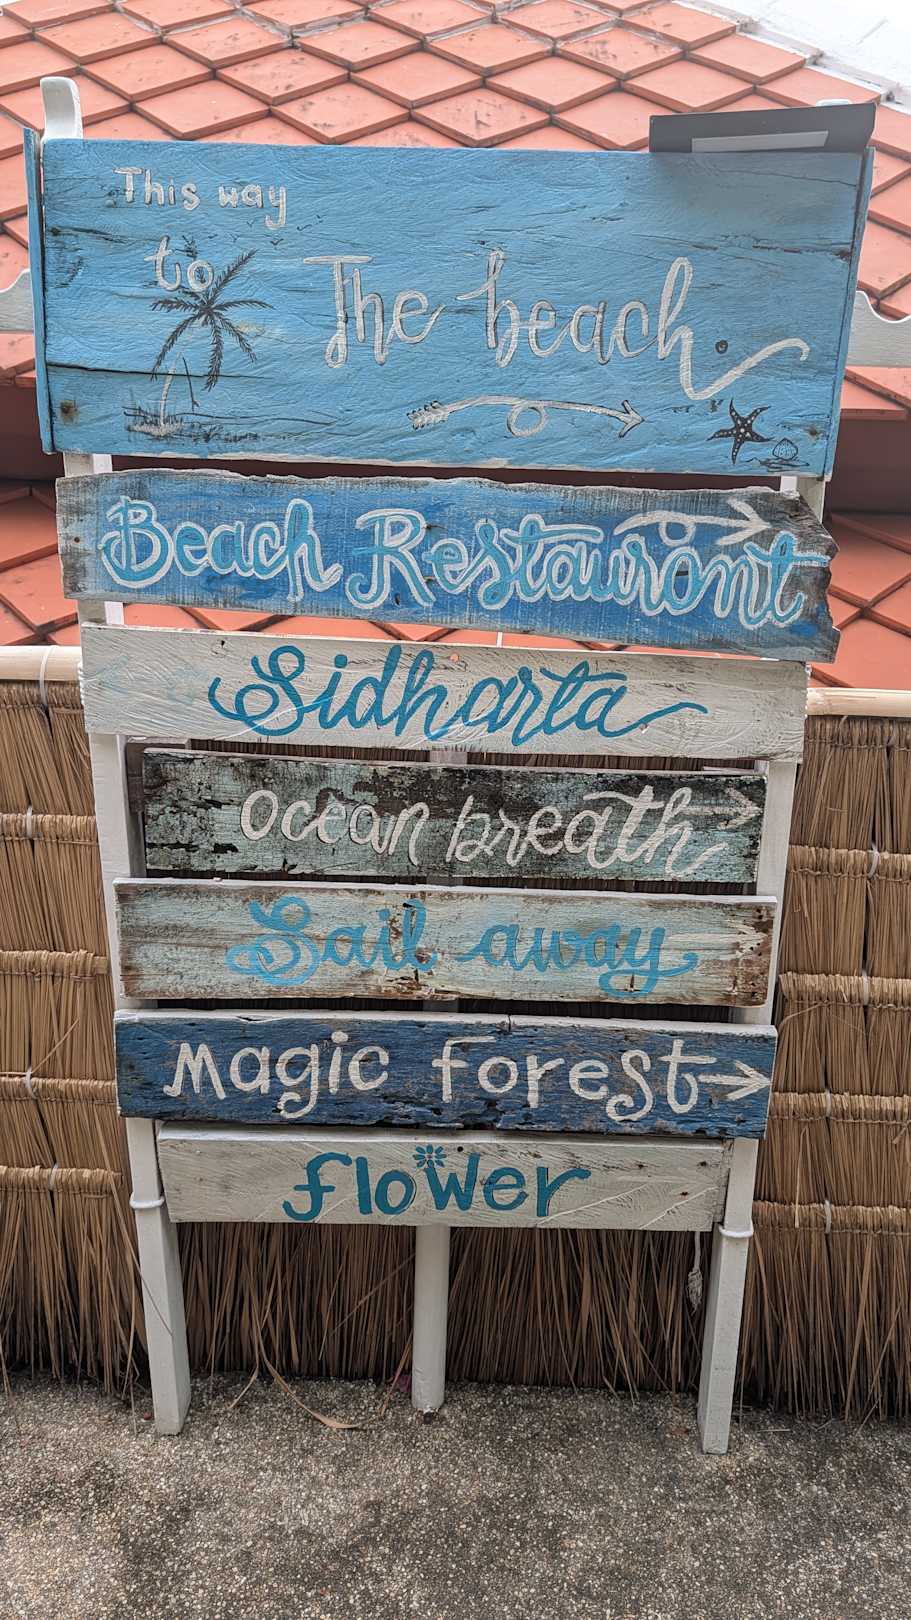 This way
to The beach
Beach Restaurant
Sidharta
ocean breath
Sail away
Magic forest
flower